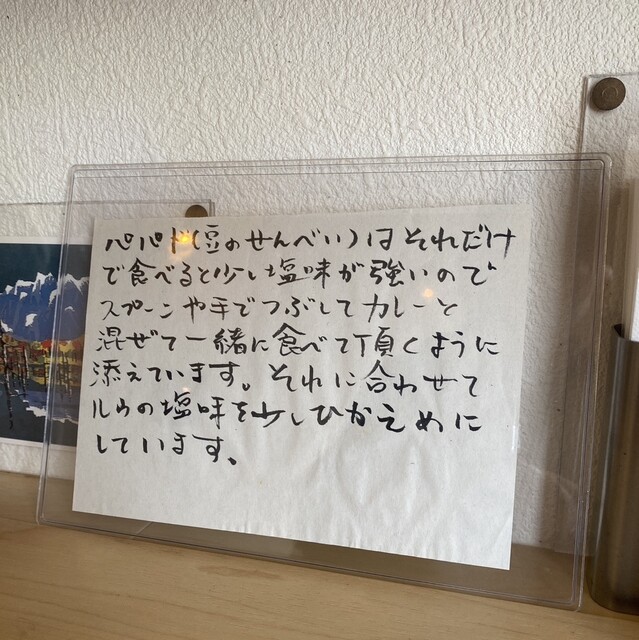 パパド(豆のせんべい)はそれだけ
で食べると少し塩味が強いので
スプーンや手でつぶしてカレーと
混ぜて一緒に食べて頂くように
添えています。それに合わせて
ルウの塩味を少しひかえめに
しています。